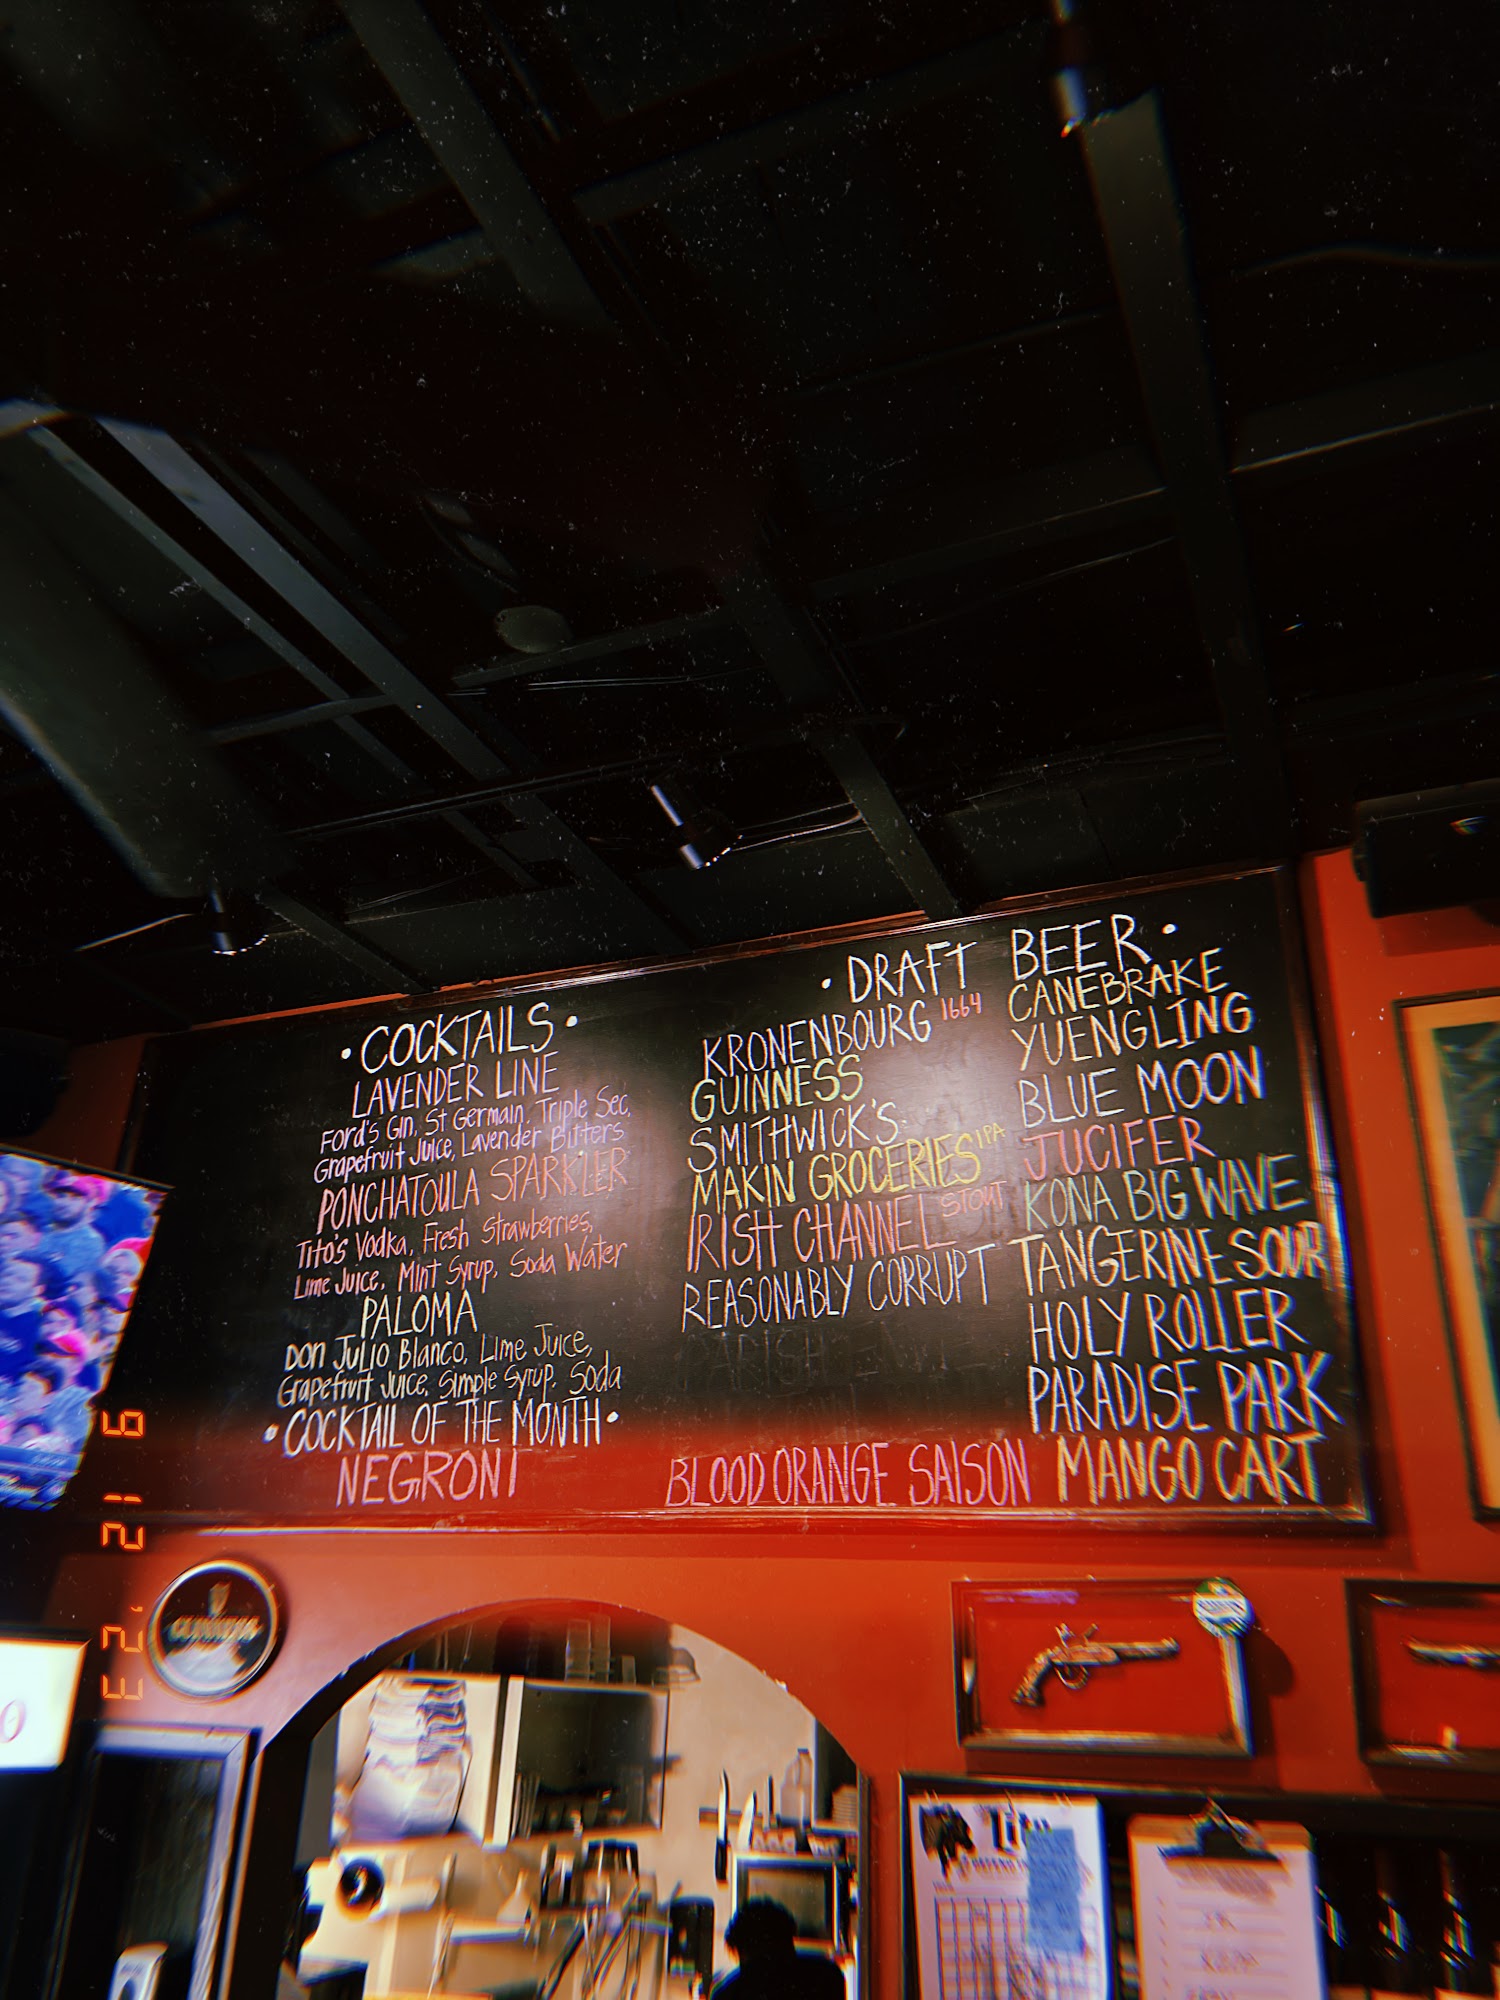 • COCKTAILS •
LAVENDER LINE
Ford's Gin, St Germain, Triple Sec,
Grapefruit Juice, Lavender Bitters
PONCHATOULA SPARKLER
Tito's Vodka, Fresh Strawberries,
Lime Juice, Mint Syrup, Soda Water
PALOMA
Don Julio Blanco, Lime Juice,
Grapefruit Juice, Simple Syrup, Soda
• COCKTAIL OF THE MONTH •
NEGRONI
• DRAFT BEER •
KRONENBOURG 1664
GUINNESS
SMITHWICK'S
MAKIN GROCERIES IPA
IRISH CHANNEL STOUT
REASONABLY CORRUPT
BLOOD ORANGE SAISON
CANEBRAKE
YUENGLING
BLUE MOON
JUCIFER
KONA BIG WAVE
TANGERINE SOUR
HOLY ROLLER
PARADISE PARK
MANGO CART
GUINNESS